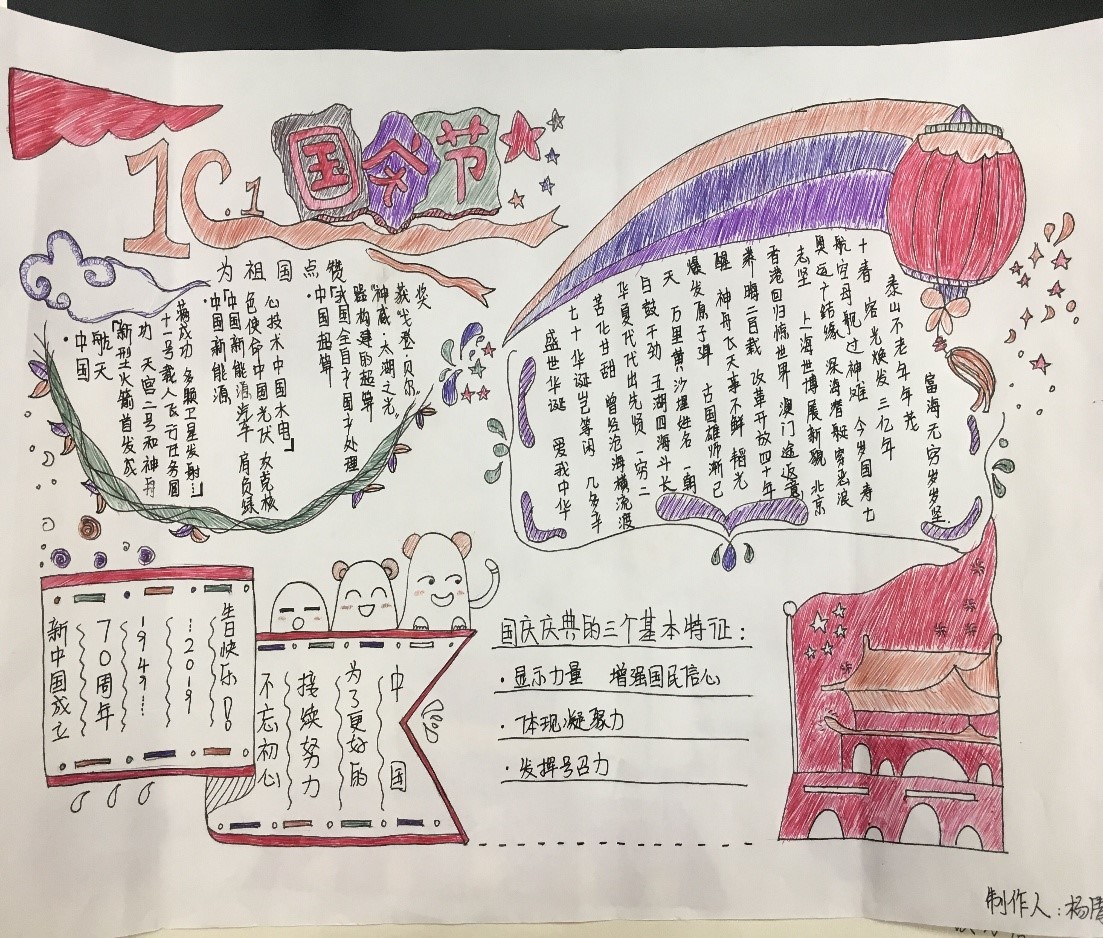 10.1
国庆节
为祖国点赞
·中国
航天
「新型火箭首发成
功 天宫二号和神舟
十一号载人飞行任务圆
满成功 多颗卫星发射…」
·中国新能源
「中国新能源汽车 肩负绿
色使命 中国光伏 攻克核
心技术 中国水电」
·中国起算
「我国全自主国产处理
器构建的起算
“神威·太湖之光”
获“戈登·贝尔”
奖
盛世华诞 爱我中华
七十华诞岂等闲 几多辛
苦化甘甜 曾经沧海横流渡
华夏代代出先贤 一穷二
白鼓干劲 五湖四海斗长
天 万里黄沙埋姓名 一朝
爆发原子弹 古国雄师渐已
醒 神舟飞天事不鲜 韬光
养 二百载 改革开放四十年
香港回归惊世界 澳门 返意
志坚 上海世博展新貌 北京
奥运 结缘 深海潜艇穿恶浪
航空母舰过神难 今岁国寿七
十春 容光焕发三亿年
泰山不老年年茂
富海无穷岁岁坚
新中国成立
70周年
1949…
…2019
生日快乐!!
不忘初心
接续努力
为了更好的
中国
国庆庆典的三个基本特征:
·显示力量 增强国民信心
·体现凝聚力
·发挥号召力
制作人:杨